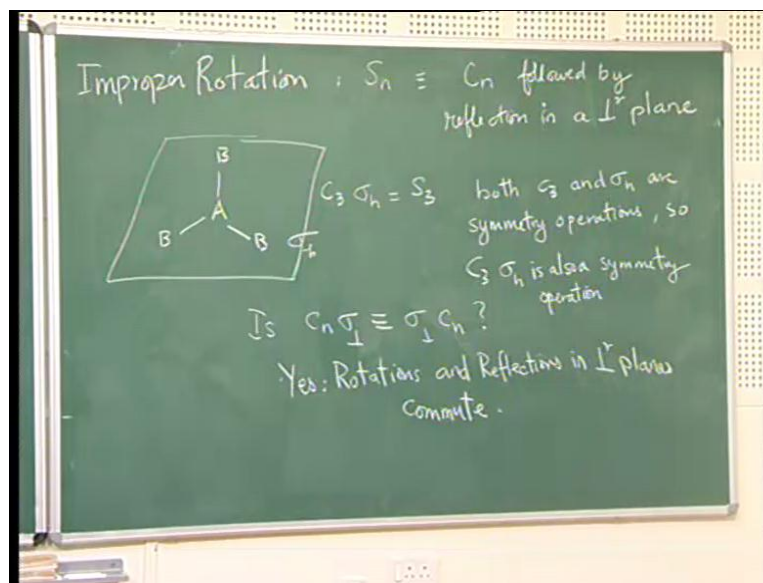 Improper Rotation : Sn ≡ Cn followed by
reflection in a ⊥r plane
B
A
B
B
σh
C3 σh = S3
both C3 and σh are
symmetry operations, so
C3 σh is also a symmetry
operation
Is Cn σ⊥ ≡ σ⊥ Cn ?
Yes: Rotations and Reflections in ⊥r planes
commute.